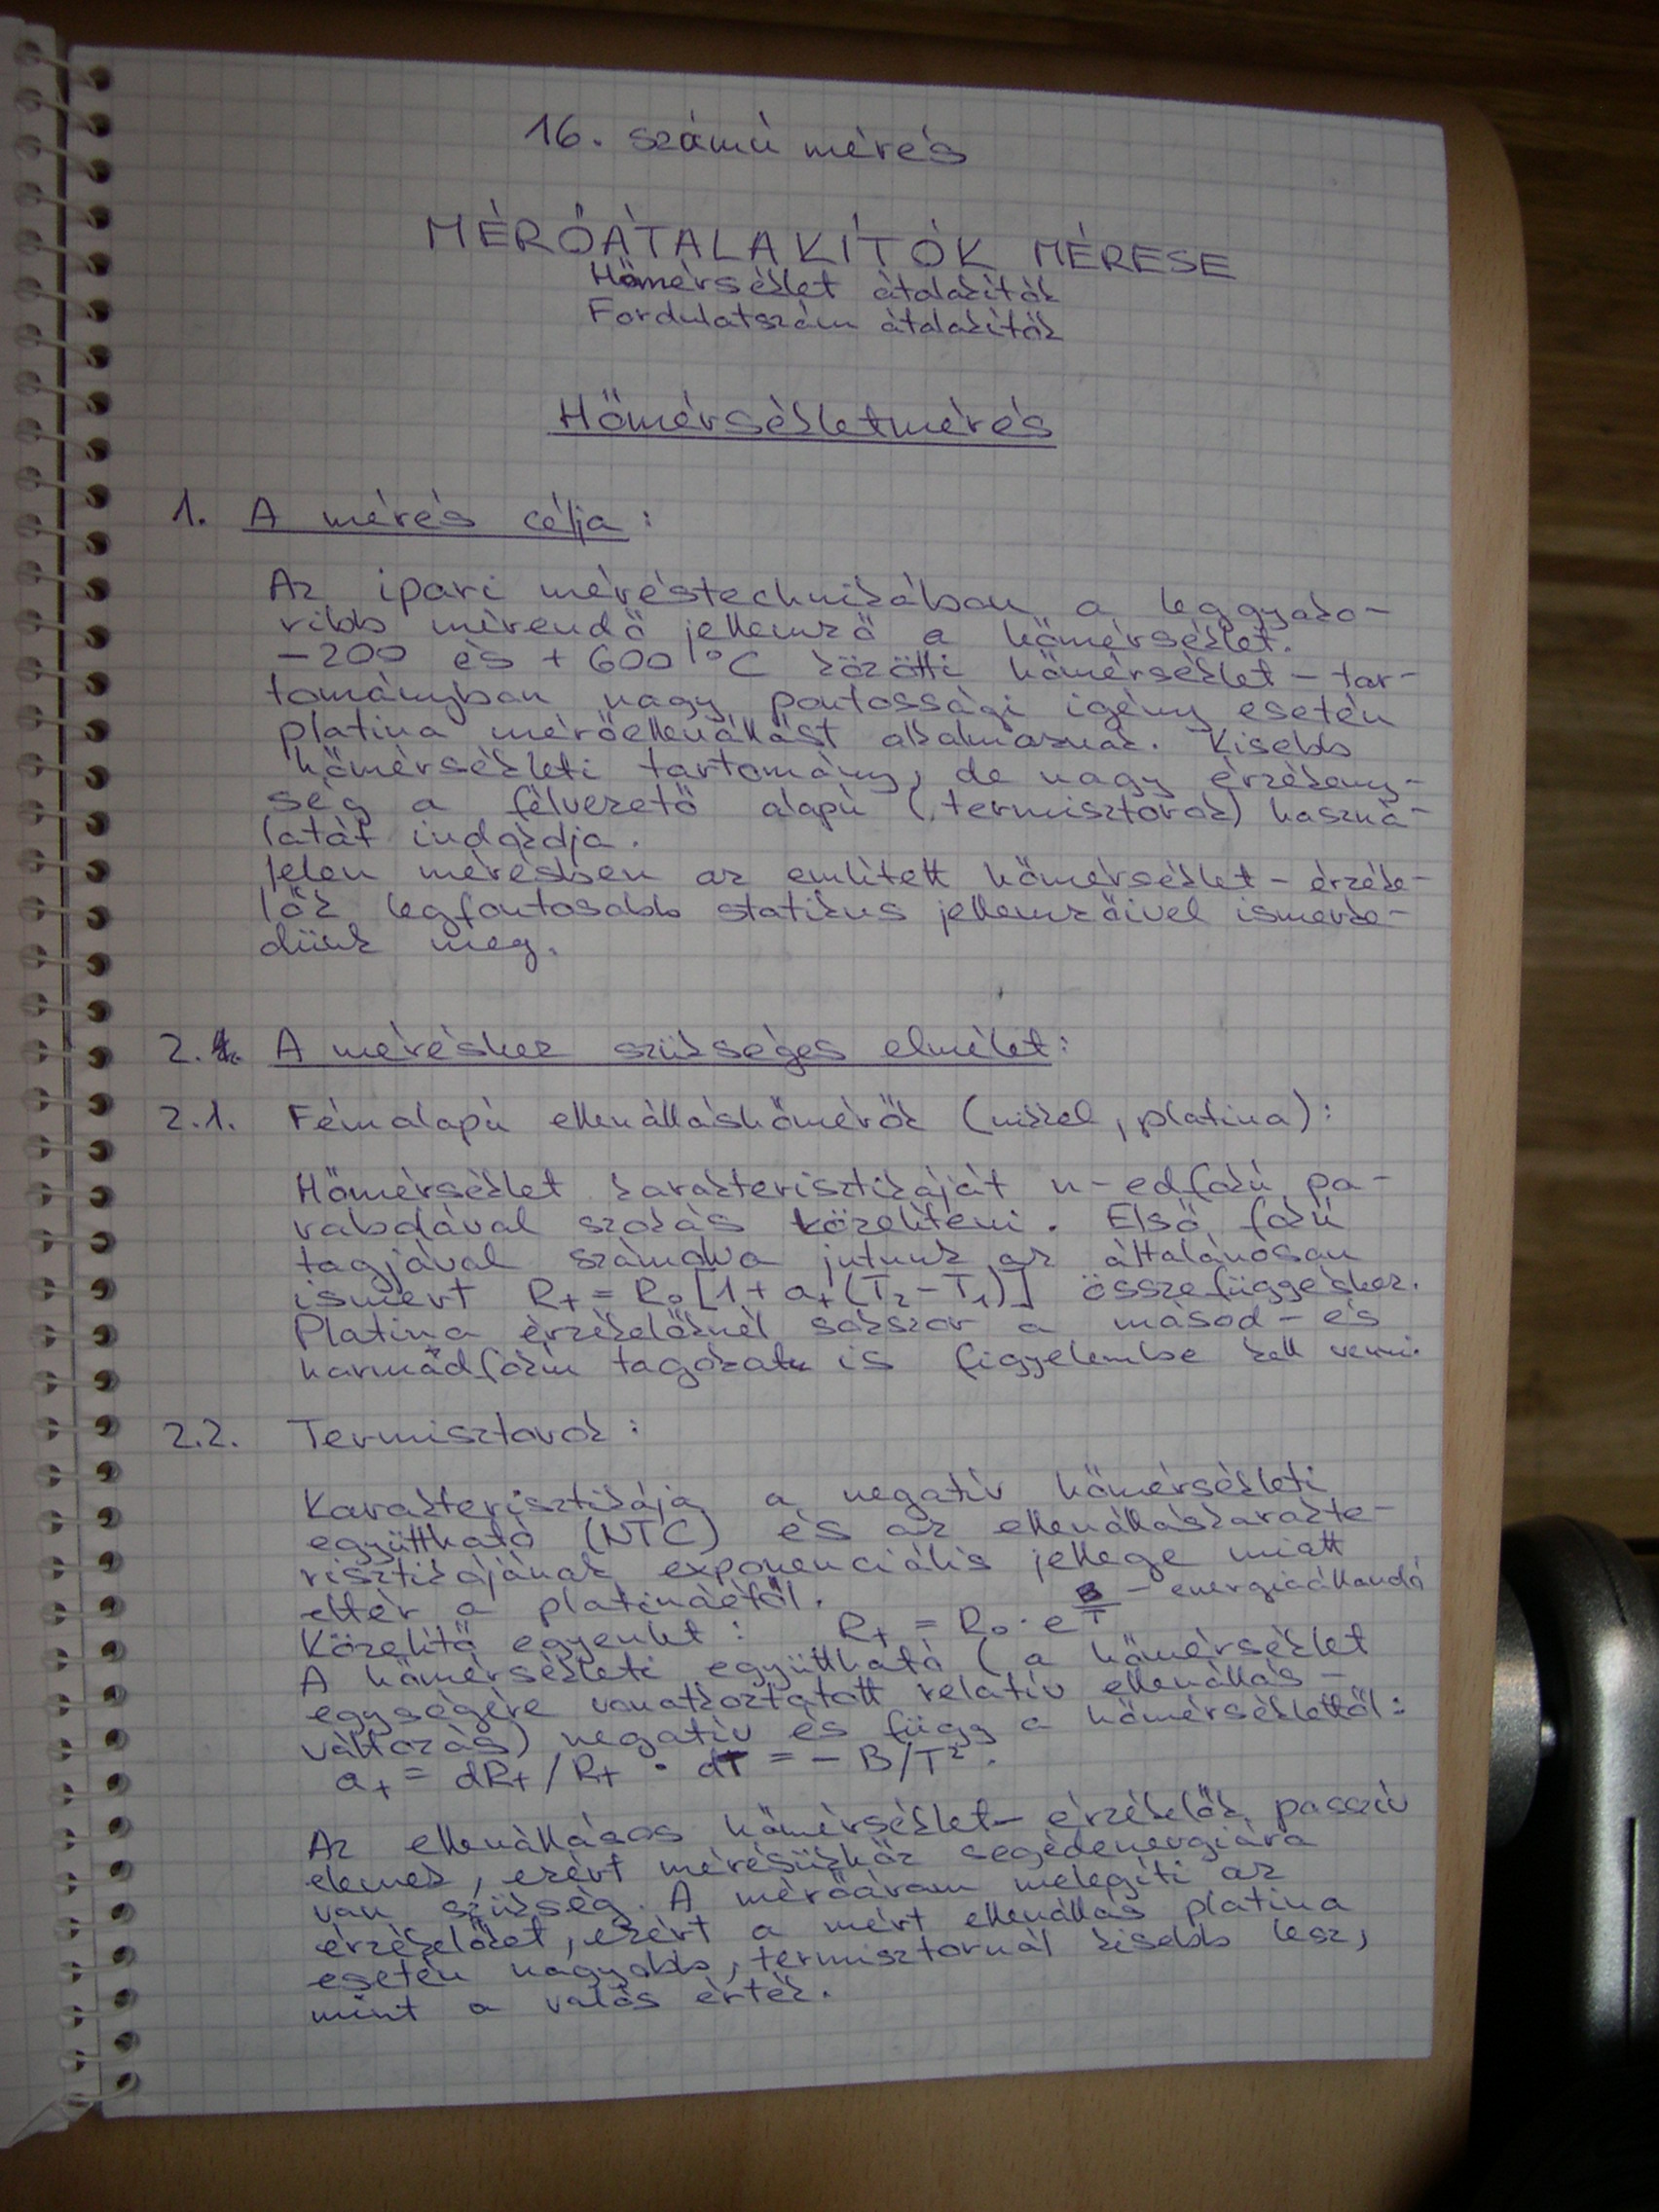 16. számú mérés
MÉRŐÁTALAKÍTÓK MÉRÉSE
Hőmérséklet átalakítók
Fordulatszám átalakítók
Hőmérsékletmérés
1. A mérés célja:
Az ipari méréstechnikában a leggyako-
ribb mérendő jellemző a hőmérséklet.
-200 és +600 °C közötti hőmérséklet-tar-
tományban nagy pontossági igény esetén
platina mérőellenállást alkalmaznak. Kisebb
hőmérsékleti tartomány, de nagy érzékeny-
ség a félvezető alapú (termisztorok) haszná-
latát indokolja.
Jelen mérésben az említett hőmérséklet-érzéke-
lők legfontosabb statikus jellemzőivel ismerke-
dünk meg.
2. A méréshez szükséges elmélet:
2.1. Fémalapú ellenálláshőmérők (nikkel, platina):
Hőmérséklet karakterisztikáját n-edfokú pa-
rabolával szokás közelíteni. Első fokú
tagjával számolva jutunk az általánosan
ismert R₊ = R₀[1+a₊(T₂-T₁)] összefüggéshez.
Platina érzékelőknél sokszor a másod- és
harmadfokú tagokat is figyelembe kell venni.
2.2. Termisztorok:
Karakterisztikája a negatív hőmérsékleti
együttható (NTC) és az ellenálláskarakte-
risztikájának exponenciális jellege miatt
eltér a platináétól.
B - energiaállandó
Közelítő egyenlet: R₊ = R₀·e^(B/T)
A hőmérsékleti együttható (a hőmérséklet
egységére vonatkoztatott relatív ellenállás-
változás) negatív és függ a hőmérséklettől:
a₊ = dR₊/R₊ · dT = -B/T².
Az ellenállásos hőmérséklet-érzékelők passzív
elemek, ezért mérésükhöz segédenergiára
van szükség. A mérőáram melegíti az
érzékelőket, ezért a mért ellenállás platina
esetén nagyobb, termisztornál kisebb lesz,
mint a valós érték.